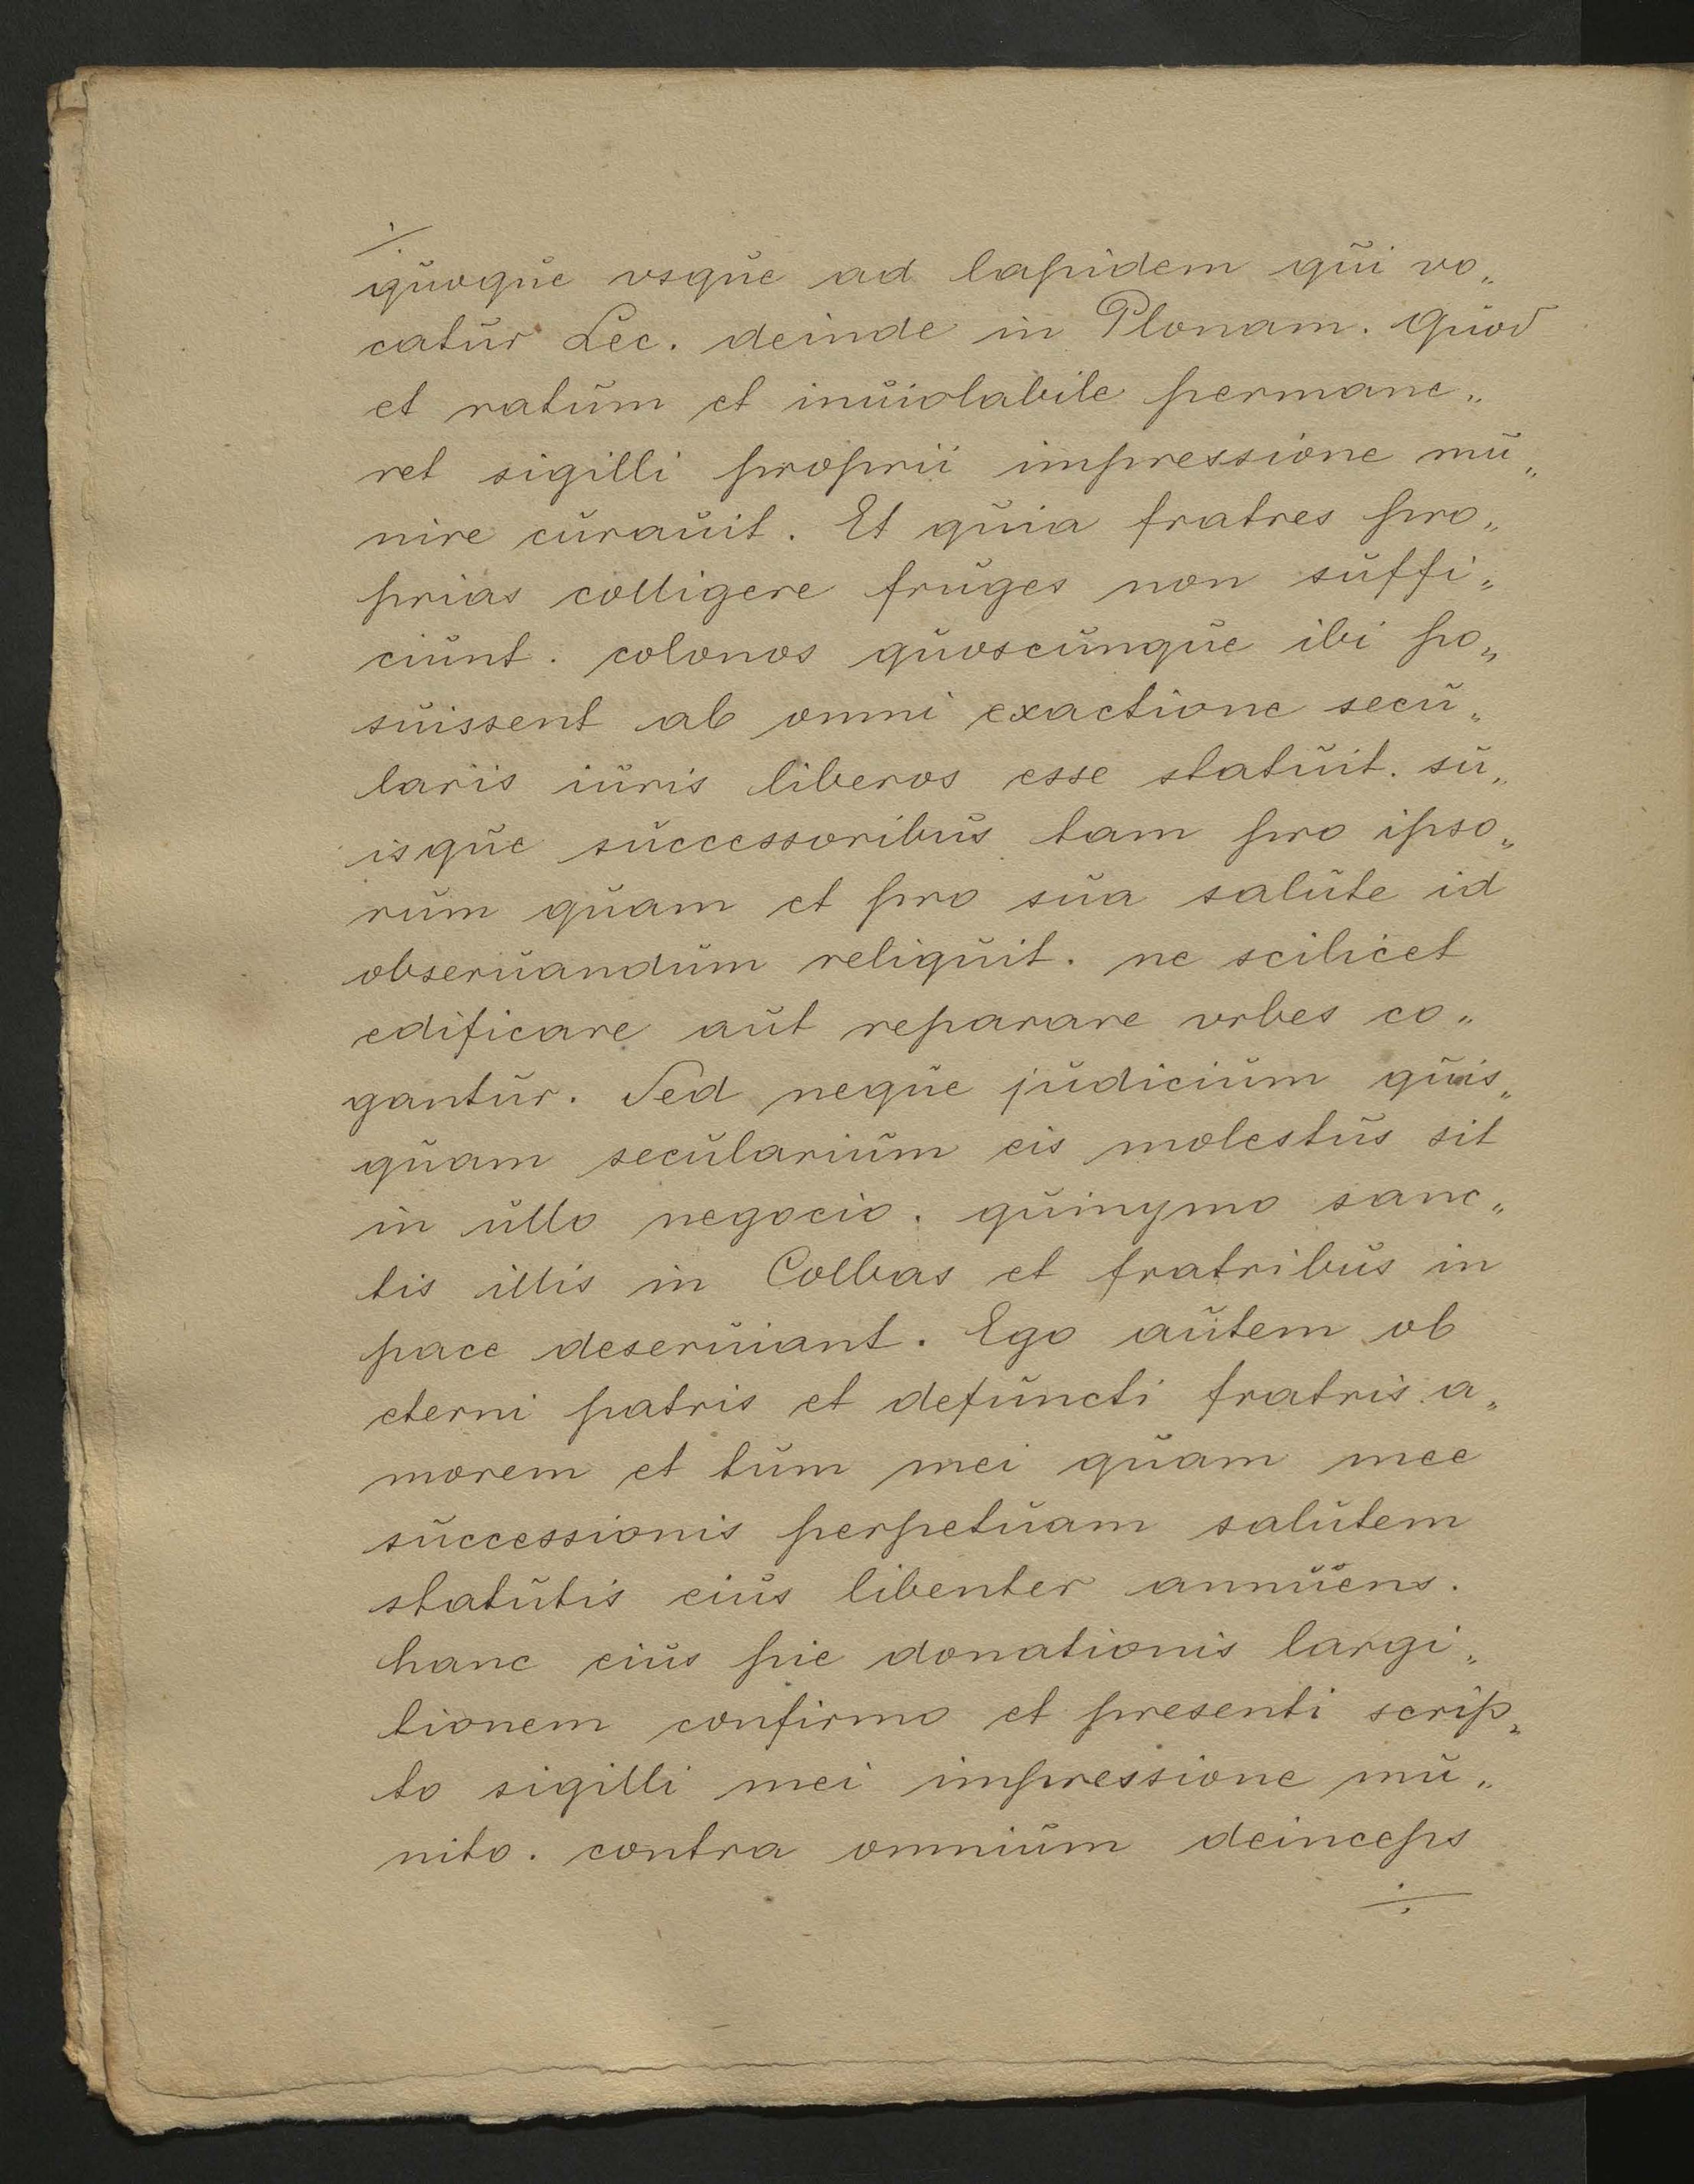 quoque vsque ad lapidem qui vo„
catur Lec. deinde in Plonam. Quod
et ratum et inuiolabile permane„
ret sigilli proprii impressione mu„
nire curauit. Et quia fratres pro„
prias colligere fruges non suffi„
ciunt. colonos quoscunque ibi po„
suissent ab omni exactione secu„
laris iuris liberos esse statuit. su„
isque successoribus tam pro ipso„
rum quam et pro sua salute id
obseruandum reliquit. ne scilicet
edificare aut reparare vrbes co„
gantur. Sed neque judicium quis„
quam secularium eis molestus sit
in ullo negocio. quinymo sanc„
tis illis in Colbas et fratribus in
pace deseruiant. Ego autem ob
eterni patris et defuncti fratris a„
morem et tum mei quam mee
successionis perpetuam salutem
statutis eius libenter annuens.
hanc eius pie donationis largi„
tionem confirmo et presenti scrip„
to sigilli mei impressione mu„
nito. contra omnium deinceps